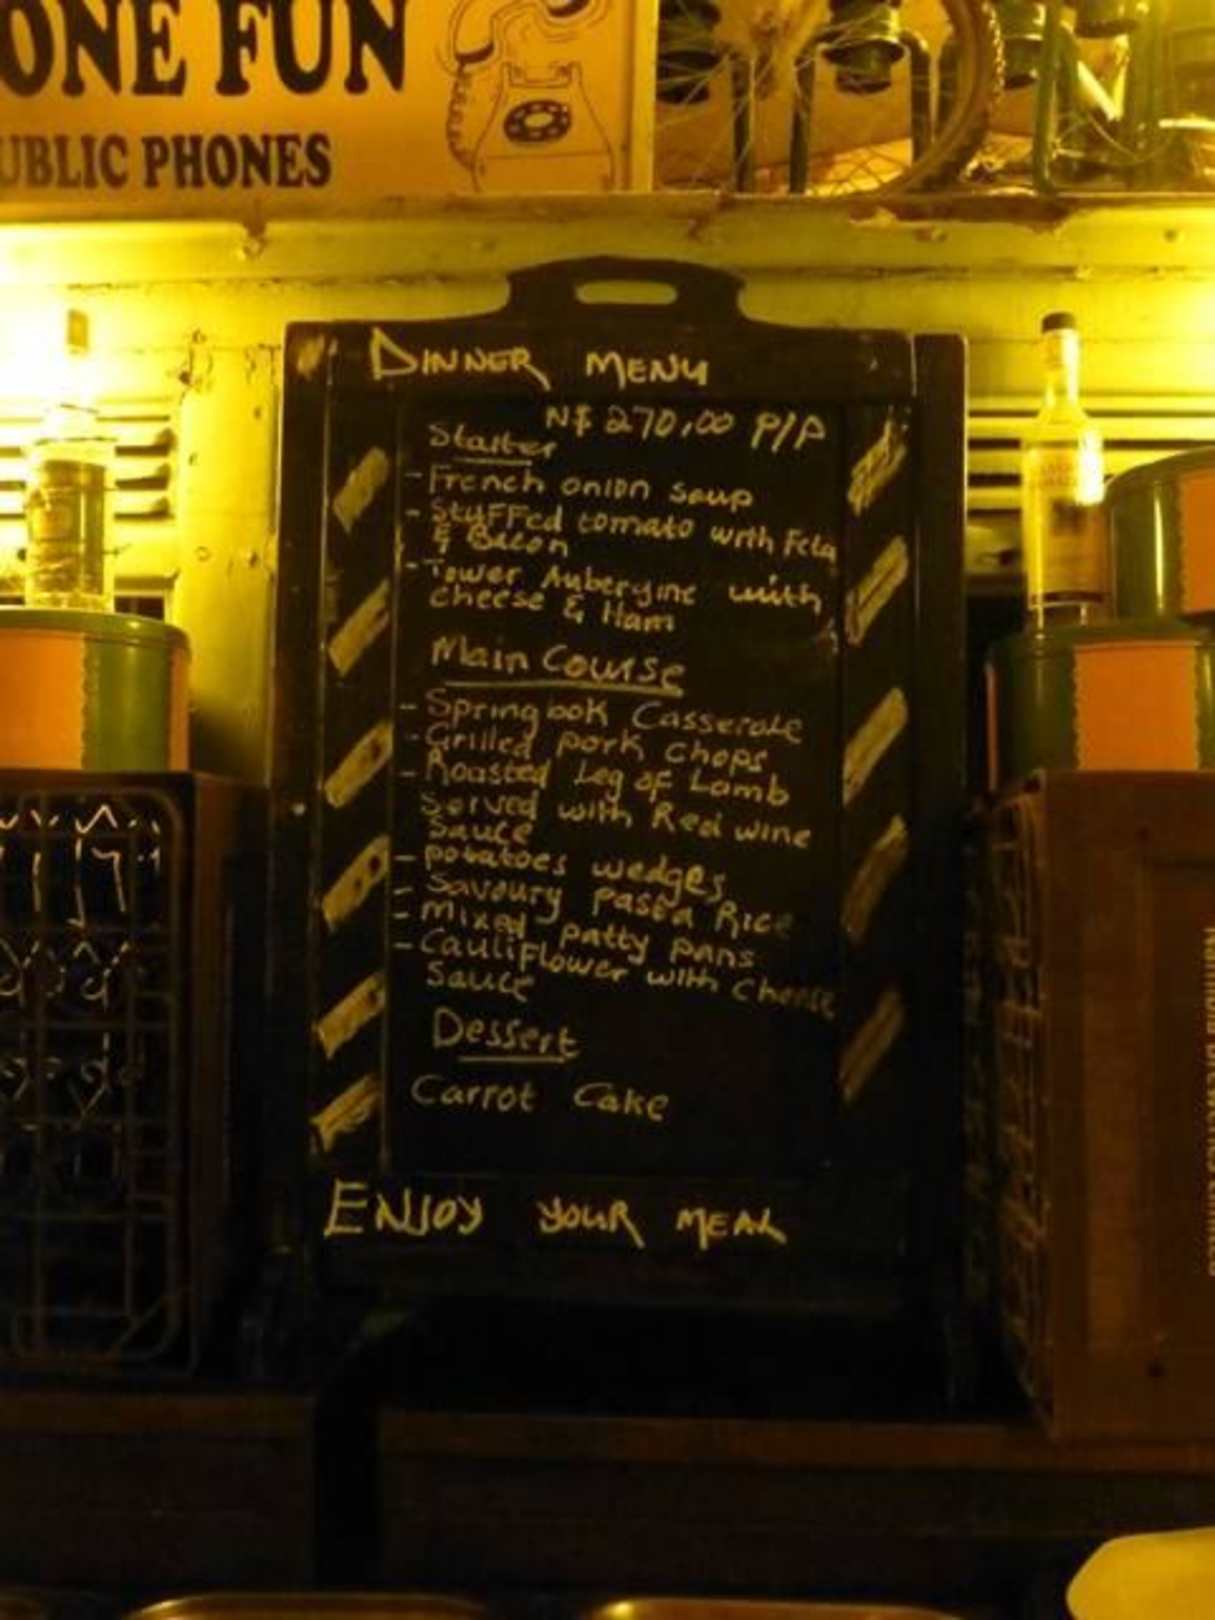 ONE FUN
UBLIC PHONES
DINNER MENU
N$ 270,00 P/P
Starter
- French onion soup
- Stuffed tomato with Feta
& Bacon
- Tower Aubergine with
cheese & Ham
Main Course
- Springbok Casserole
- Grilled pork chops
- Roasted Leg of Lamb
Served with Red wine
Sauce
- potatoes wedges
- Savoury pasta Rice
- Mixed patty pans
- Cauliflower with cheese
Sauce
Dessert
Carrot Cake
ENJOY YOUR MEAL